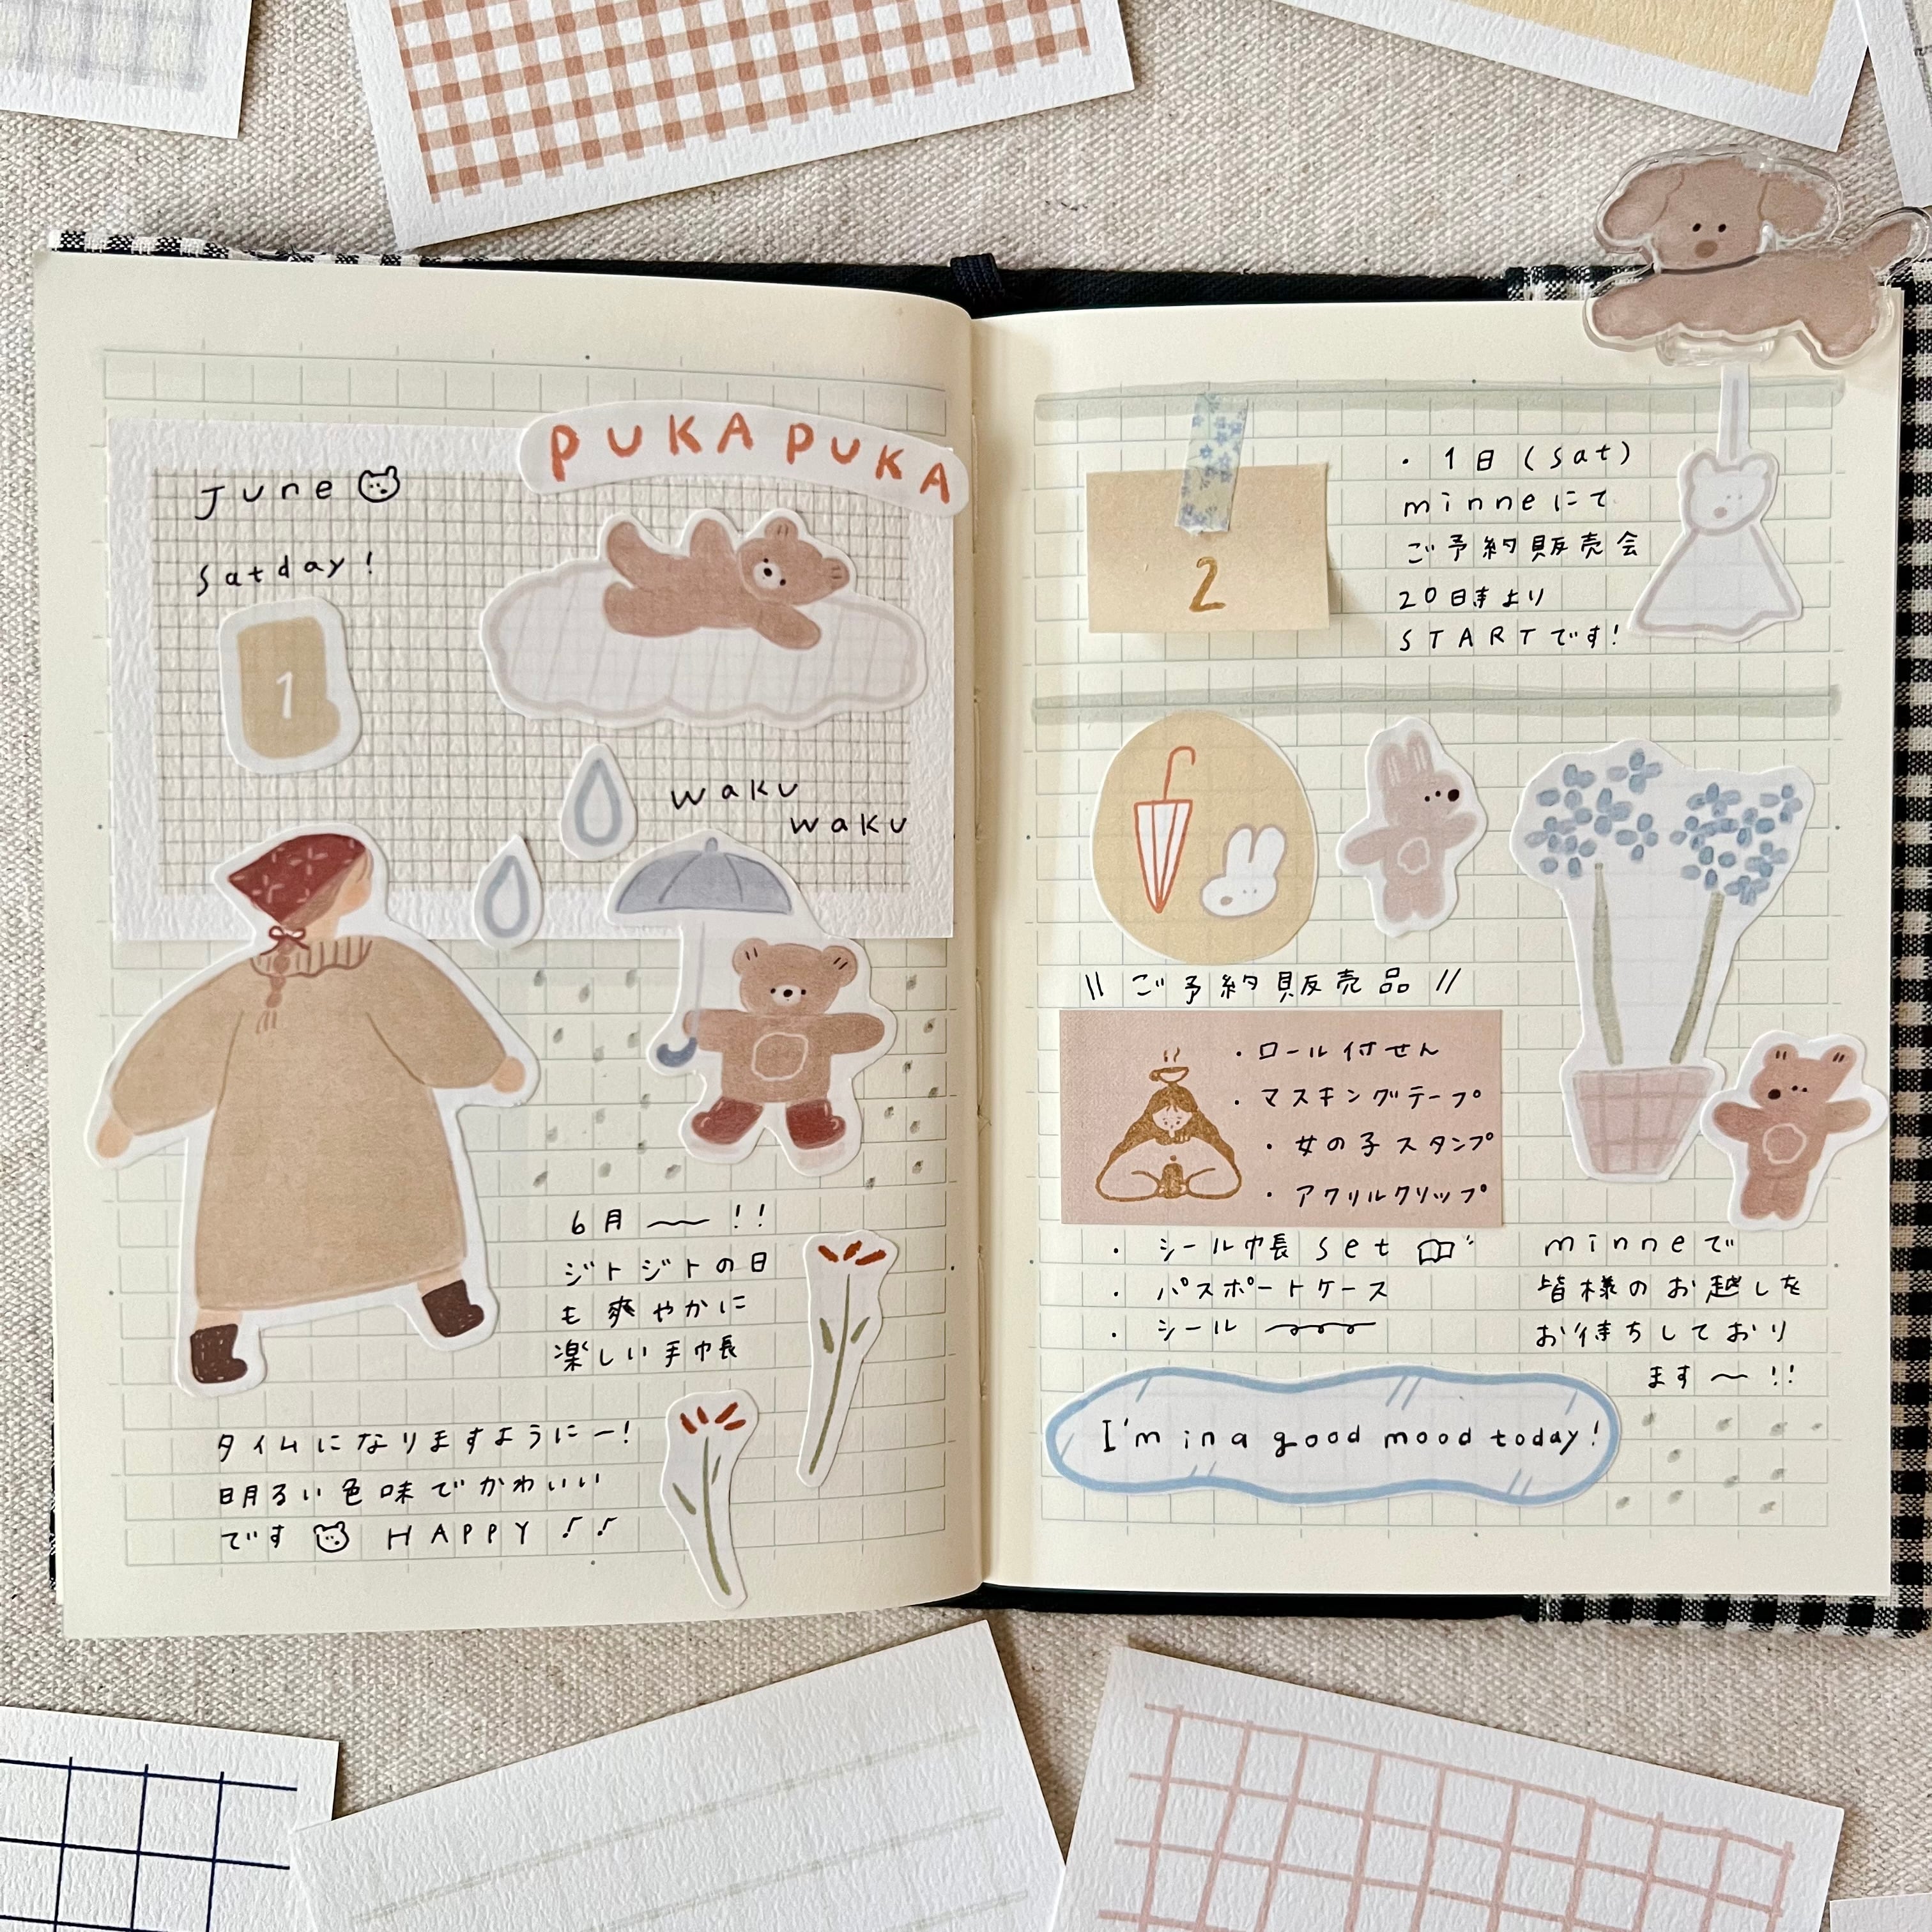 PUKAPUKA
June
Satday!
1
waku
waku
6月〜!!
ジトジトの日
も爽やかに
楽しい手帳
タイムになりますようにー!
明るい色味でかわいい
です HAPPY !!
2
・1日(sat)
minneにて
ご予約販売会
20時より
STARTです!
\\ ご予約販売品 //
・ロール付せん
・マスキングテープ
・女の子スタンプ
・アクリルクリップ
・シール帳set
・パスポートケース
・シール
minneで
皆様のお越しを
お待ちしており
ます〜!!
I'm in a good mood today!